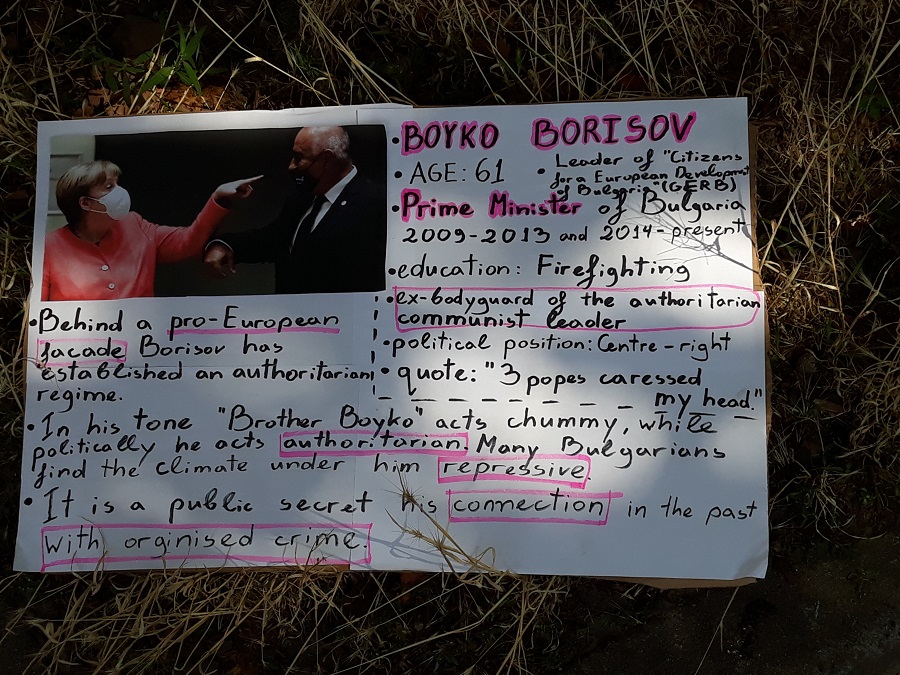 • BOYKO BORISOV
• AGE: 61
• Leader of "Citizens
for a European Development
of Bulgaria" (GERB)
• Prime Minister of Bulgaria
2009-2013 and 2014-present
• education: Firefighting
• ex-bodyguard of the authoritarian
communist leader
• political position: Centre-right
• quote: "3 popes caressed
my head."
• Behind a pro-European
facade Borisov has
established an authoritarian
regime.
• In his tone "Brother Boyko" acts chummy, while
politically he acts authoritarian. Many Bulgarians
find the climate under him repressive.
• It is a public secret his connection in the past
with orginised crime.